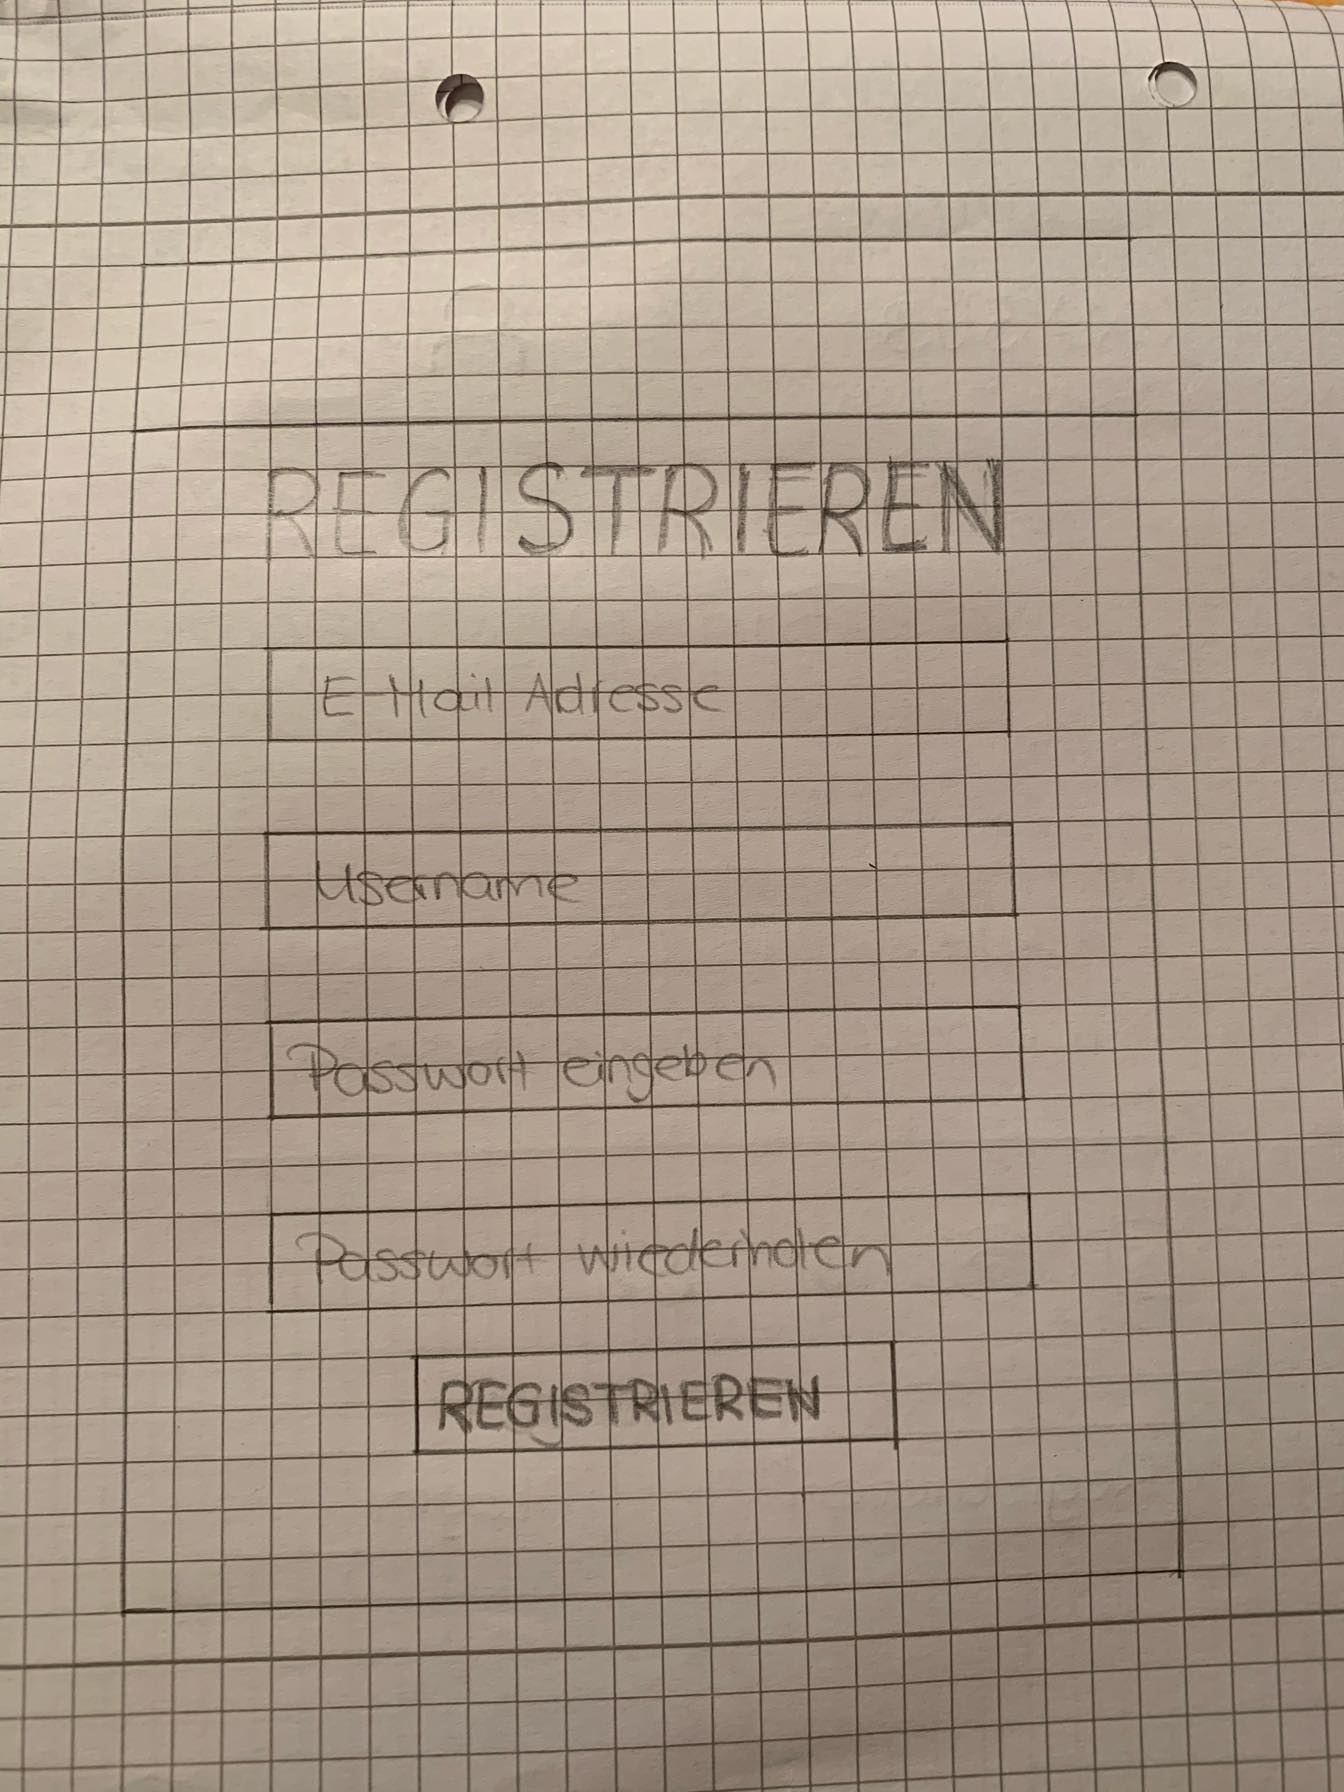 REGISTRIEREN
E-Mail Adresse
Username
Passwort eingeben
Passwort wiederholen
REGISTRIEREN